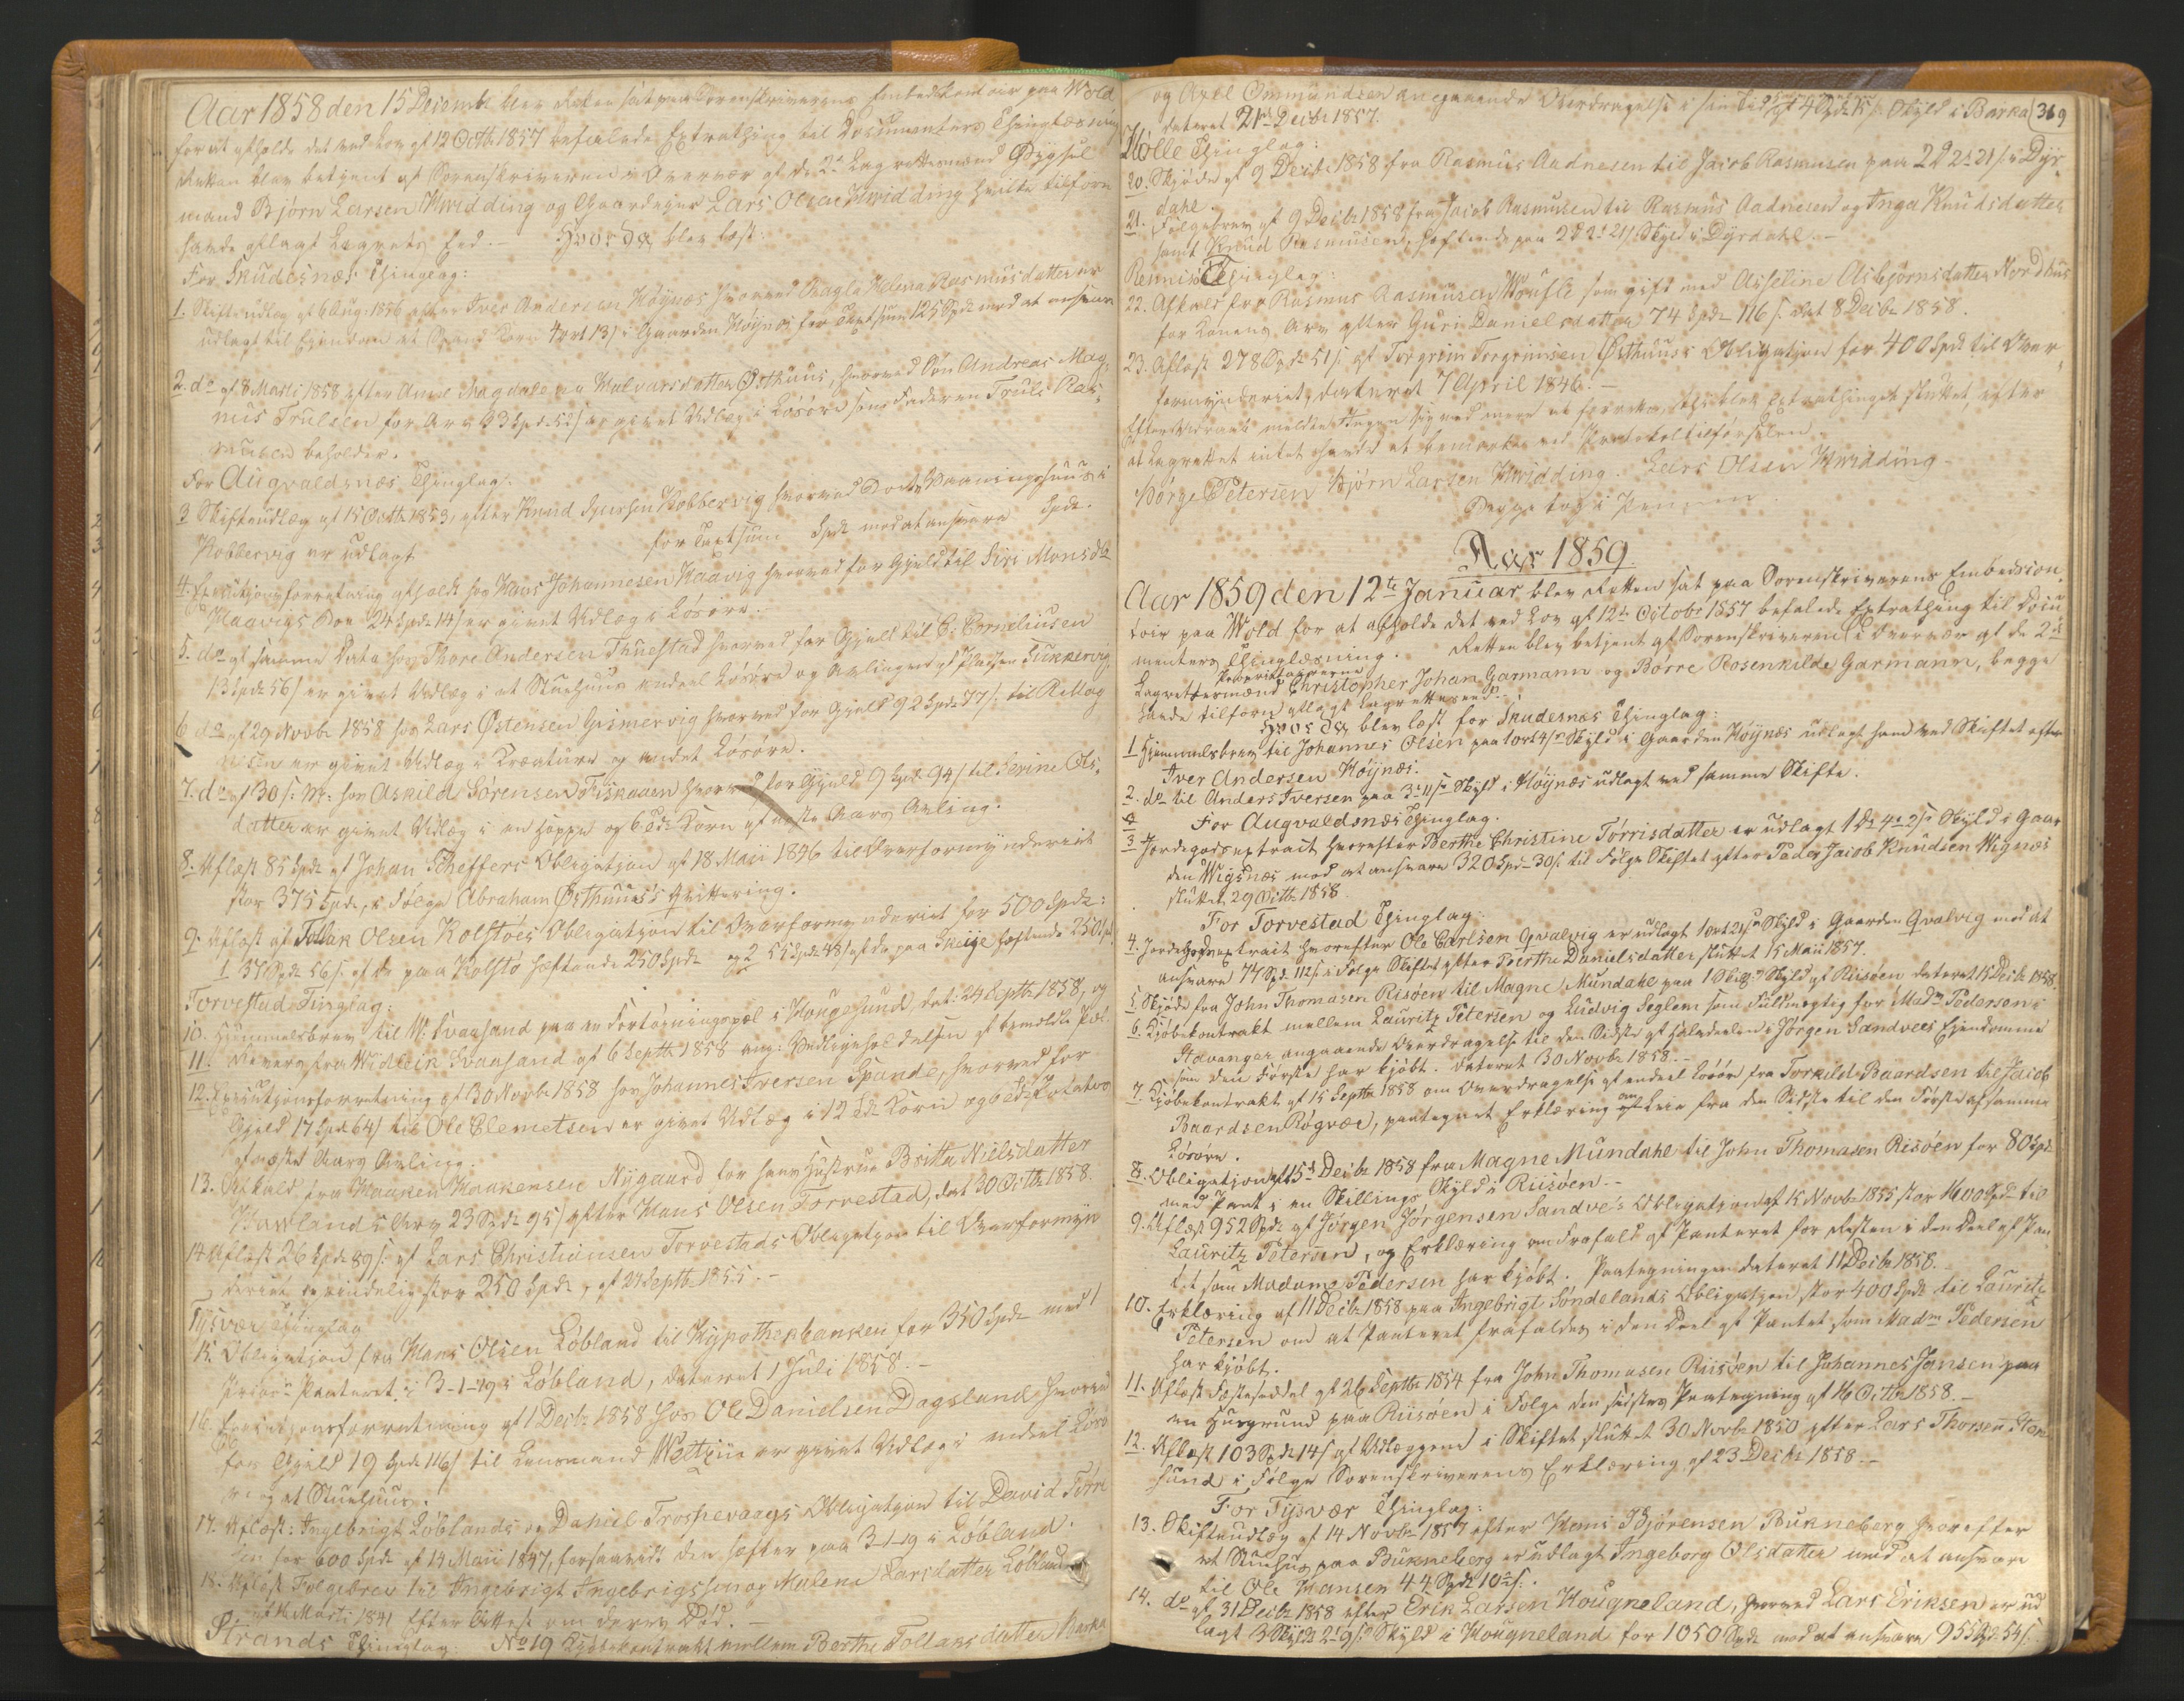 Aar 1858 den 15 Decembr blev Retten sat paa Sorenskriverens Embedscontoir paa Wold
for at afholde det ved Lov af 12 Octbr 1857 befalede Extrathing til Documenters Thinglæsning
Retten blev betjent af Sorenskriveren i Overvær af de 2de Lagrettesmænd Bygsel
mand Bjørn Larsen Hvidding og Gaardeier Lars Olsen Hvidding hvilke tilforn
havde aflagt Lagrets Eed. – Hvorda blev læst:
For Skudesnæs Thinglag:
1. Skifteudlæg af 6 Aug: 1856 efter Iver Andersen Høynæs hvorved Ragla Helena Rasmusdatter er
udlagt til Eiendom 4 ort 13 s i Gaarden Høynæs for Taxtsum 125 Spd mod at ansvare
2. do af 8 Marts 1858 efter Anne Magdalena Halvarsdatter Østhuus, hvorved Søn Andreas Mag
nus Trulsen for Arv 93 Spd 52 s er givet Udlæg i Løsøre som Faderen Truls Ras
musen beholder.
For Augvaldsnæs Thinglag:
3 Skifteudlæg af 15 Octbr 1853, efter Knud Sjursen Kobbervig hvorved Vaaningshuus i
Kobbervig er udlagt for Taxtsum Spd mod at ansvare Spd.
4. Executionsforretning afholdt hos Hans Johannesen Haavig hvorved for Gjeld til Siri Monsdtr
Haavigs Søn 24 Spd 14 s er givet Udlæg i Løsøre.
5. do af samme Dato hos Thore Andersen Thuestad hvorved for Gjeld til C. Corneliusen
13 Spd 56 s er givet Udlæg i et Stuehuus endeel Løsøre og Avlingen af Pladsen Sukkervig
6 do af 29 Novbr 1858 hos Lars Østensen Gismervig hvorved for Gjeld 92 Spd 77 s. til R Mag
nisen er givet Udlæg i Creature og andet Løsøre.
7. do af 30 s: M: hos Askild Sørensen Fiskaaen hvorved for Gjeld 9 Spd 94 s til Serine Ols
datter er givet Udlæg i en Hoppe og 6 Tdr Korn af næste Aars Avling.
8. Aflæst 85 Spd af Johan Scheffers Obligation af 18 Maii 1846 til Overformynderiet
stor 375 Spd, i Følge Abraham Østhuus's Qvittering.
9. Aflæst af Tollak Olsen Kolstøes Obligation til Overformynderiet for 500 Spd:
1 37 Spd 56 s. af de paa Kolstø heftende 250 Spd og 2 55 Spd 48 s af de paa Skeije heftende 250 Spd
Torvestad Tinglag:
10. Himmelsbrev til W. Svansand paa en Fortøiningspæl i Hougesund, dat: 24 Septbr 1858, og
11. Revers fra Widleik Svansand af 6 Septbr 1858 ang: Vedligeholdelsen af bemeldte Pæl
12. Executionsforretning af 30 Novbr 1858 hos Johannes Iversen Spande, hvorved for
Gjeld 17 Spd 64 s til Ole Clemetsen er givet Udlæg i 12 Tdr Korn og 6 Tdr Potatos
af næste Aars Avling.
13. Afkald fra Haaken Haakensen Nygaard for hans Hustrue Britta Nielsdatter
Hawlands Arv 23 Spd 95 s efter Hans Olsen Torvestad, dat 30 Octbr 1858.
14 Aflæst 26 Spd 89 s. af Lars Christiansen Torvestads Obligation til Overformyn
deriet oprindelig stor 250 Spd, af 24 Septbr 1855. –
Tysvær Thinglag
15. Obligation fra Hans Olsen Løbland til Hypothekbanken for 350 Spd med 1
Priors Panteret i 3-1-19 i Løbland, dateret 1 Juli 1858. –
16. Executionsforretning af 1 Decbr 1858 hos Ole Danielsen Dagsland hvorved
for Gjeld 19 Spd 116 s til Lensmand Wettrjus er givet Udlæg i endeel Løsø
re og et Stuehuus.
17. Aflæst: Ingebrigt Løblands og Daniel Trosnevaags Obligation til David Torre
sen for 600 Spd af 14 Maii 1847, forsaavidt den hefter paa 3-1-19 i Løbland.
18. Aflæst Følgebrev til Ingebrigt Ingebrigtsson og Malena Larsdatter Løbland
af 16 Marts 1841 efter Attest om deres Død. –
Strands Thinglag: No 19 Kjøbekontrakt mellem Berthe Tollaksdatter Barka
og Axel Ommundsen angaaende Overdragelse i sin Tid af 4 Spd 15 s. Skyld i Barka 369
dateret 21de Decbr 1857.
Holle Thinglag:
20. Skjøde af 9 Decbr 1858 fra Rasmus Aadnesen til Jacob Rasmusen paa 2 2 21 s. i Dyr
dahl.
21. Følgebrev af 9 Decbr 1858 fra Jacob Rasmusen til Rasmus Aadnesen og Inga Knudsdatter
samt Knud Rasmusen, heftende paa 2 2 21 s. Skyld i Dyrdahl. –
Rennisø Thinglag:
22. Afkald fra Rasmus Rasmusen Woufle som gift med Asseline Asbjørnsdatter Nordhus
for Konens Arv efter Guri Danielsdatter 74 Spd 116 s. dat 8 Decbr 1858.
23. Aflæst 278 Spd 51 s. af Torgrim Torgrimsen Østhuus's Obligation for 400 Spd til Over
formynderiet, dateret 7 April 1846. –
at Lagrettet intet havde at bemærke ved Protokoltilførselen.
Børge Petersen Bjørn Larsen Hvidding. Lars Olsen Hvidding –
Begge
Aar 1859.
Aar 1859 den 12te Januar blev Retten sat paa Sorenskriverens Embedscon
toir paa Wold for at afholde det ved Lov af 12te October 1857 befalede Extrathing til Docu
menters Thinglæsning. Retten blev betjent af Sorenskriveren i Overvær af de 2de
Lagrettesmænd Christopher Johan Garmann og Børre Rosenkilde Garmann, begge
havde tilforn aflagt Lagretteseed. –
Hvorda blev læst for Skudesnæs Thinglag:
1 Himmelsbrev til Johannes Olsen paa 1 ort 4 s Skyld i Gaarden Høynæs udlagt ham ved Skiftet efter
Iver Andersen Høynæs.
2. do til Anders Iversen paa 3 11 s Skyld i Høynæs udlagt ved samme Skifte.
For Augvaldsnæs Thinglag.
3 Jordegodsextrait hvorefter Berthe Christine Torrisdatter er udlagt 1 4 2 s Skyld i Gaar
den Wigsnæs mod at ansvare 320 Spd 30 s. til Følge Skiftet efter Peder Jacob Knudsen Wignæs
sluttet 29 Octbr 1858.
For Torvestad Thinglag:
4. Jordegodsextrait hvorefter Ole Carlsen Qvalvig er udlagt 1 ort 21 s Skyld i Gaarden Qvalvig mod at
ansvare 74 Spd 112 s i Følge Skiftet efter Berthe Danielsdatter sluttet 15 Maii 1857.
5. Skjøde fra John Thomasen Risøen til Magne Mundahl paa 1 Skill Skyld af Risøen dateret 15 Decbr 1858.
6. Kjøbekontrakt mellem Lauritz Petersen og Ludvig Seglem som Fuldmægtig for Madm Pedersen i
Stavanger angaaende Overdragelse til den Sidste af Halvdelen i Jørgen Sandvees Eiendomme
som den Første har kjøbt. dateret 30 Novbr 1858. –
7. Kjøbekontrakt af 15 Septbr 1858 om Overdragelse af endeel Løsøre fra Torkild Baardsen til Jacob
Baardsen Røgvær, paategnet Erklæring om Leie fra den Sidste til den Første af samme
Løsøre.
8. Obligation af 15de Decbr 1858 fra Magne Mundahl til John Thomasen Risøen for 80 Spd
med Pant i en Skillings Skyld i Riisøen. –
9. Aflæst 952 Spd af Jørgen Jørgensen Sandve's Obligation af 15 Novbr 1855 stor 1600 Spd til
Lauritz Petersen, og Erklæring om Frafald af Panteret for Resten i den Deel af Pan
tet som Madame Pedersen har kjøbt. Paategningen dateret 11 Decbr 1858.
10. Erklæring af 11 Decbr 1858 paa Ingebrigt Søndelands Obligation stor 400 Spd til Lauritz
Petersen om at Panteret frafaldes i den Deel af Pantet som Madm Pedersen
har kjøbt.
11. Aflæst Fæstesedel af 26 Septbr 1854 fra John Thomasen Riisøen til Johannes Jansen paa
en Huusgrund paa Riisøen i Følge den sidstes Paategning af 16 Octbr 1858. –
12. Aflæst 103 Spd 14 s af Udlæggene i Skiftet sluttet 30 Novbr 1850 efter Lars Thorsen Sten
sund i Følge Sorenskriverens Erklæring af 23 Decbr 1858. –
For Tysvær Thinglag:
13. Skifteudlæg af 14 Novbr 1857 efter Hans Bjørensen Bukneberg hvorefter
et Vaanhuus paa Bukneberg er udlagt Ingeborg Olsdatter mod at ansvare
til Ole Hansen 44 Spd 10 s.
14. do af 31 Decbr 1858 efter Erik Larsen Hougneland, hvorved Lars Eriksen er ud
lagt 3 2 9 s Skyld i Hougneland for 1050 Spd mod at ansvare 955 Spd 54 s.